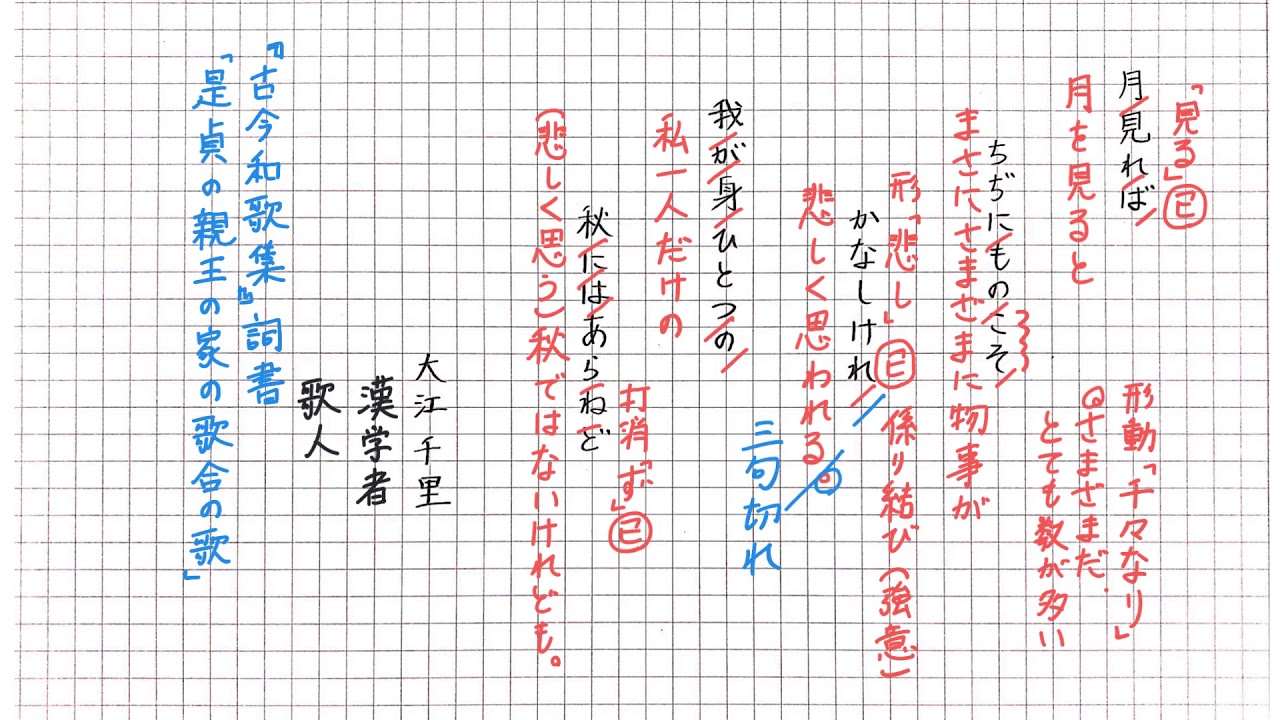 「見る」已
月見れば
月を見ると
形動「千々なり」
さまざまだ。
とても数が多い
ちぢにものこそ
まさにさまざまに物事が
形「悲し」已 係り結び（強意）
かなしけれ
悲しく思われる。
三句切れ
我が身ひとつの
私一人だけの
打消「ず」已
秋にはあらねど
（悲しく思う）秋ではないけれども。
大江千里
漢学者
歌人
『古今和歌集』詞書
「是貞の親王の家の歌合の歌」